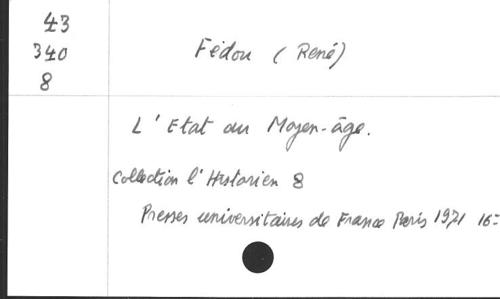 43
340
8
Fédou (René)
L'Etat au Moyen-âge.
Collection l'Historien 8
Presses universitaires de France Paris 1971 16=